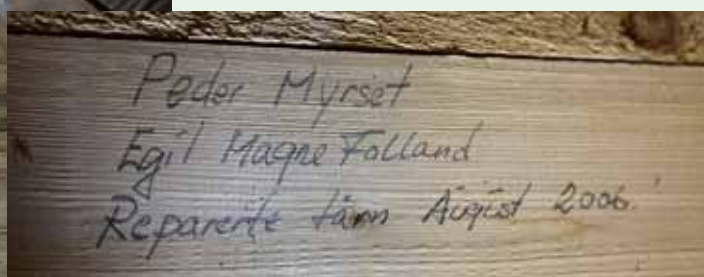 Peder Myrset
Egil Magne Folland
Reparerte tårn August 2006.